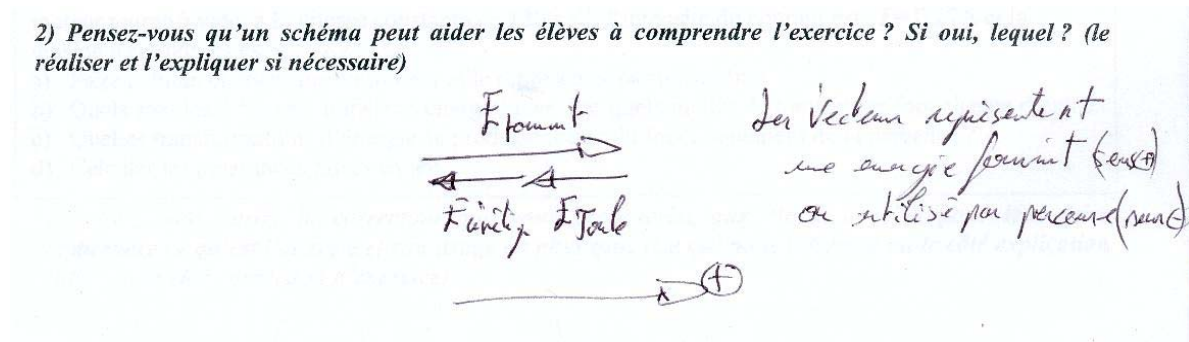 2) Pensez-vous qu'un schéma peut aider les élèves à comprendre l'exercice ? Si oui, lequel ? (le
réaliser et l'expliquer si nécessaire)
Efournit
Les Vecteurs représentent
une energie fournit (sens +)
Ecinétiq EJoule
ou utilisé par perceuse (sens -)
+